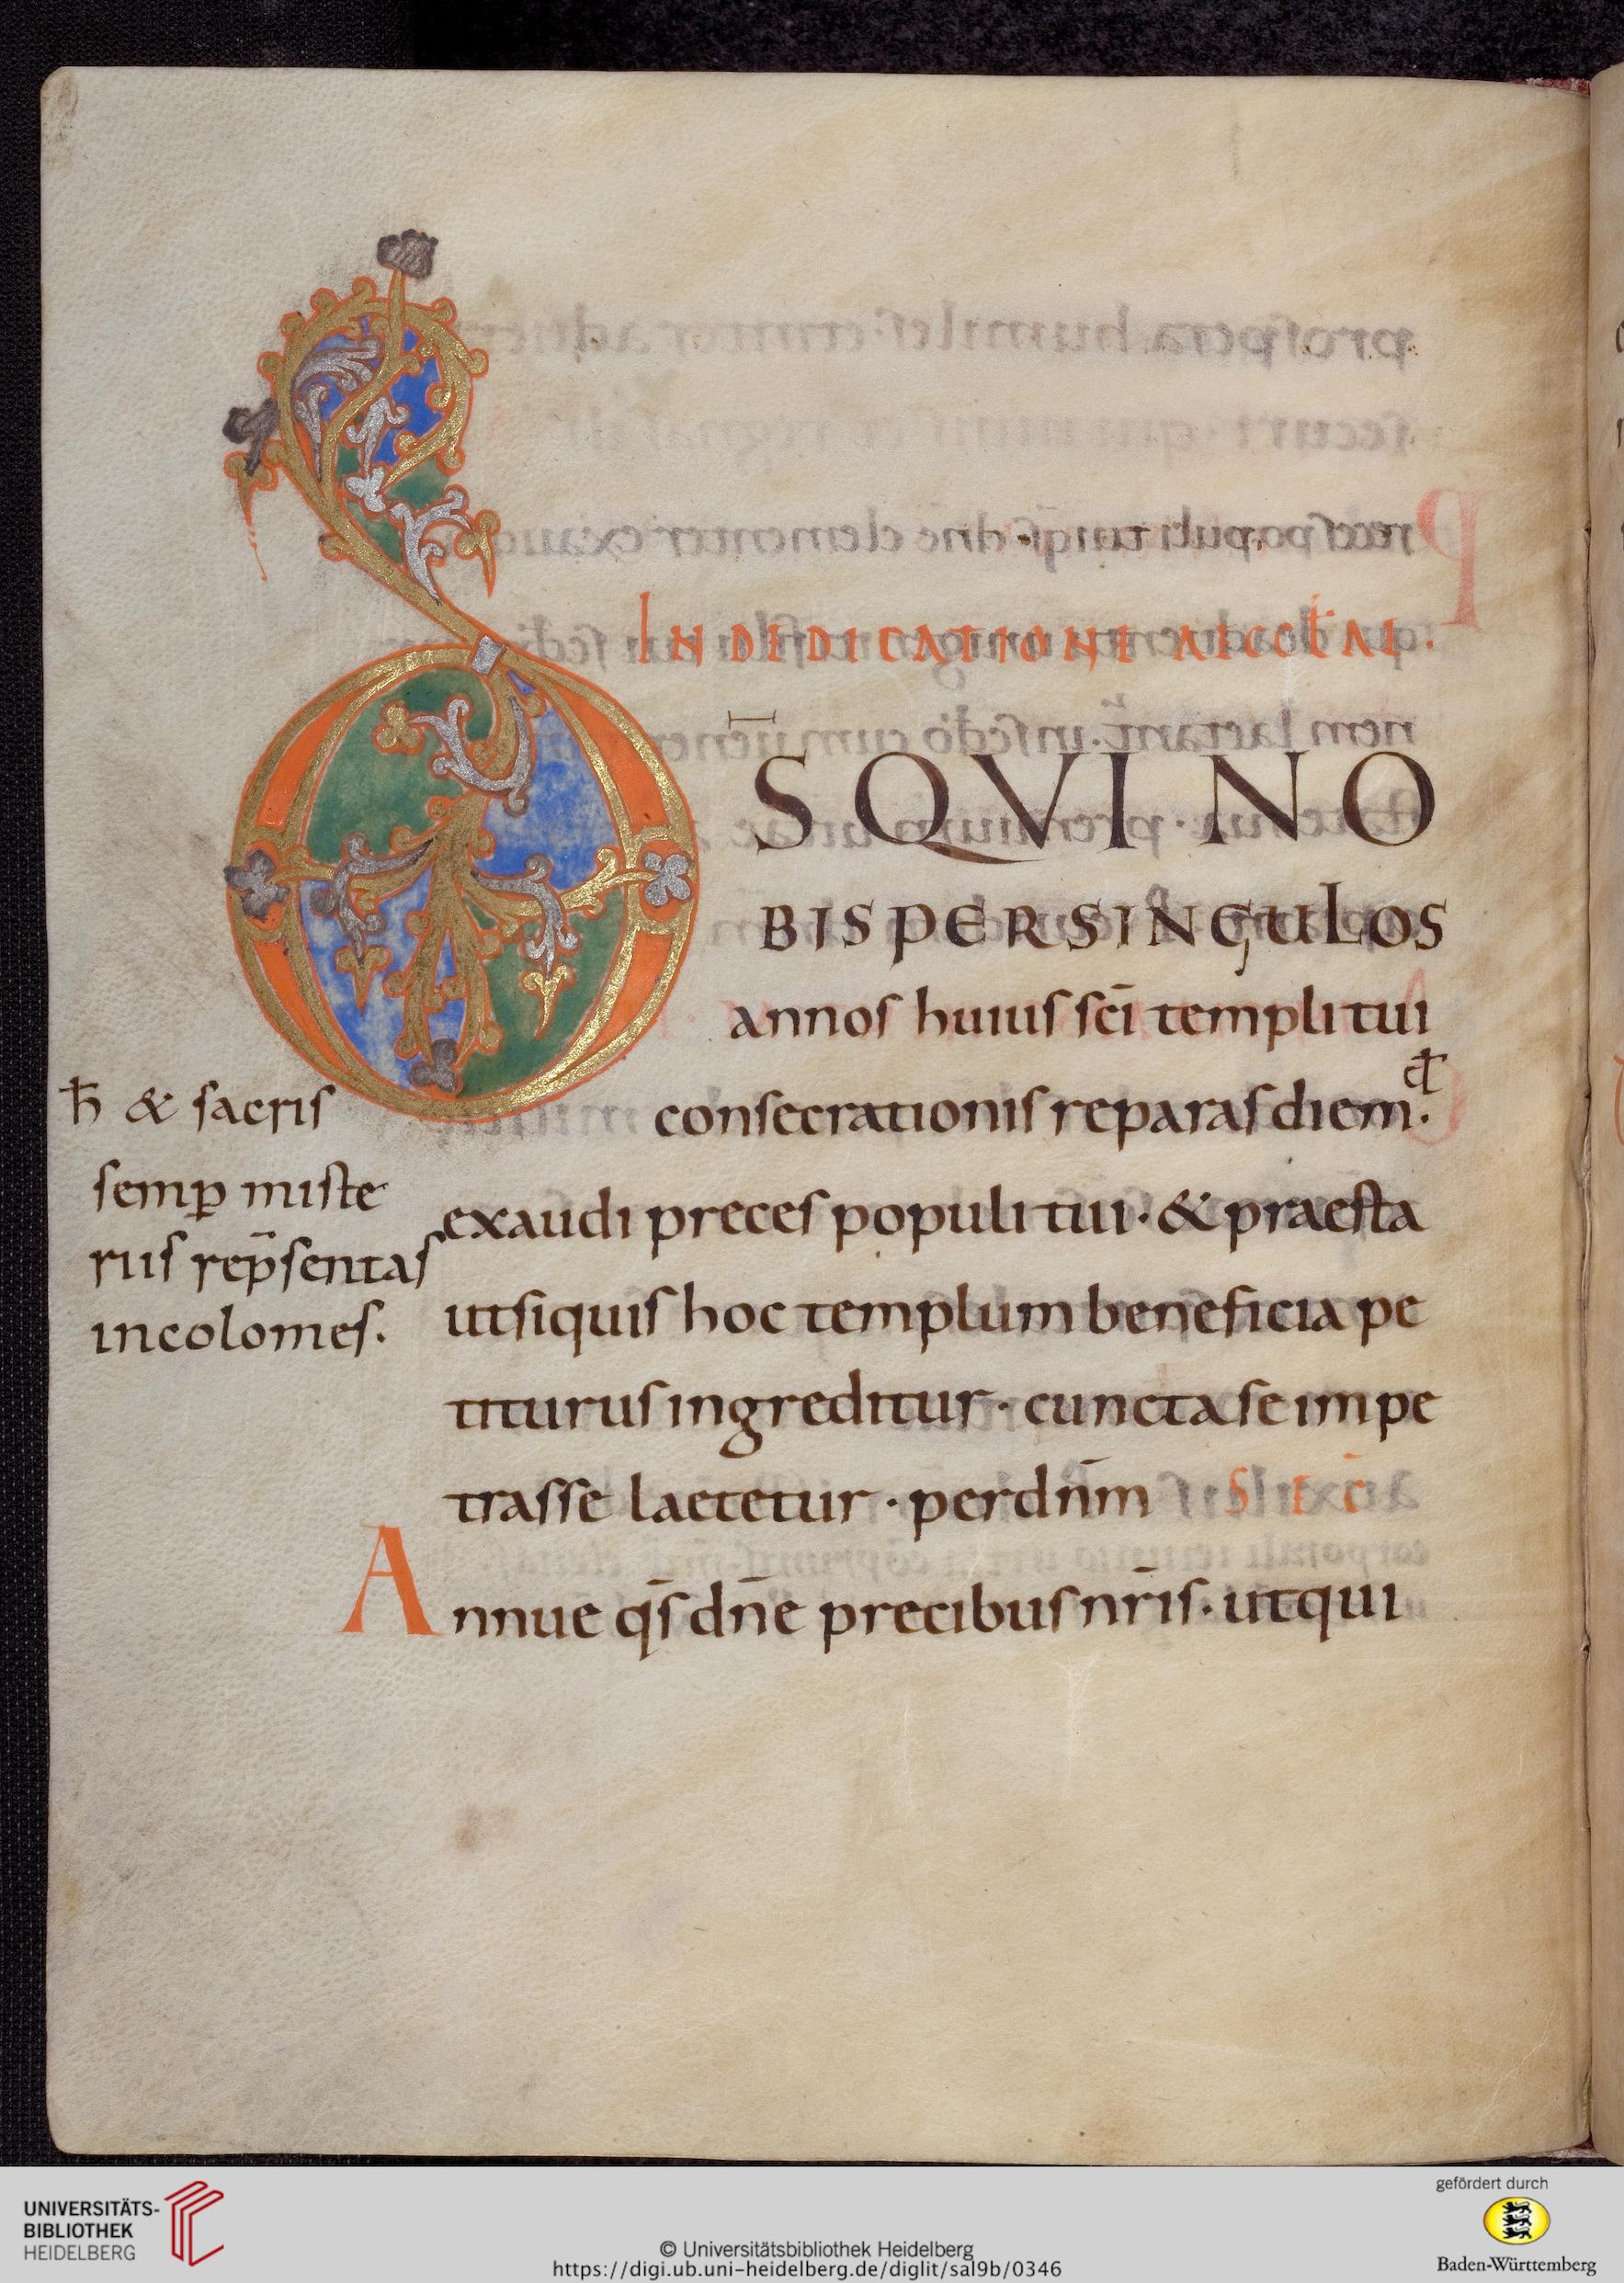 IN DEDICATIONE AECCƚAE.
D̄S QVI NO
BIS PER SINGULOS
annos huius sc̄i templi tui
consecrationis reparas diem.
exaudi preces populi tui. & praesta
ut si quis hoc templum beneficia pe
titurus ingreditur. cuncta se impe
trasse laetetur. per dn̄m S E C̄
Annue qs̄ dn̄e precibus nr̄is. ut qui
ħ & sacris
semꝑ miste
riis rep̄sentas
incolomes.
UNIVERSITÄTS-
BIBLIOTHEK
HEIDELBERG
© Universitätsbibliothek Heidelberg
https://digi.ub.uni-heidelberg.de/diglit/sal9b/0346
gefördert durch
Baden-Württemberg